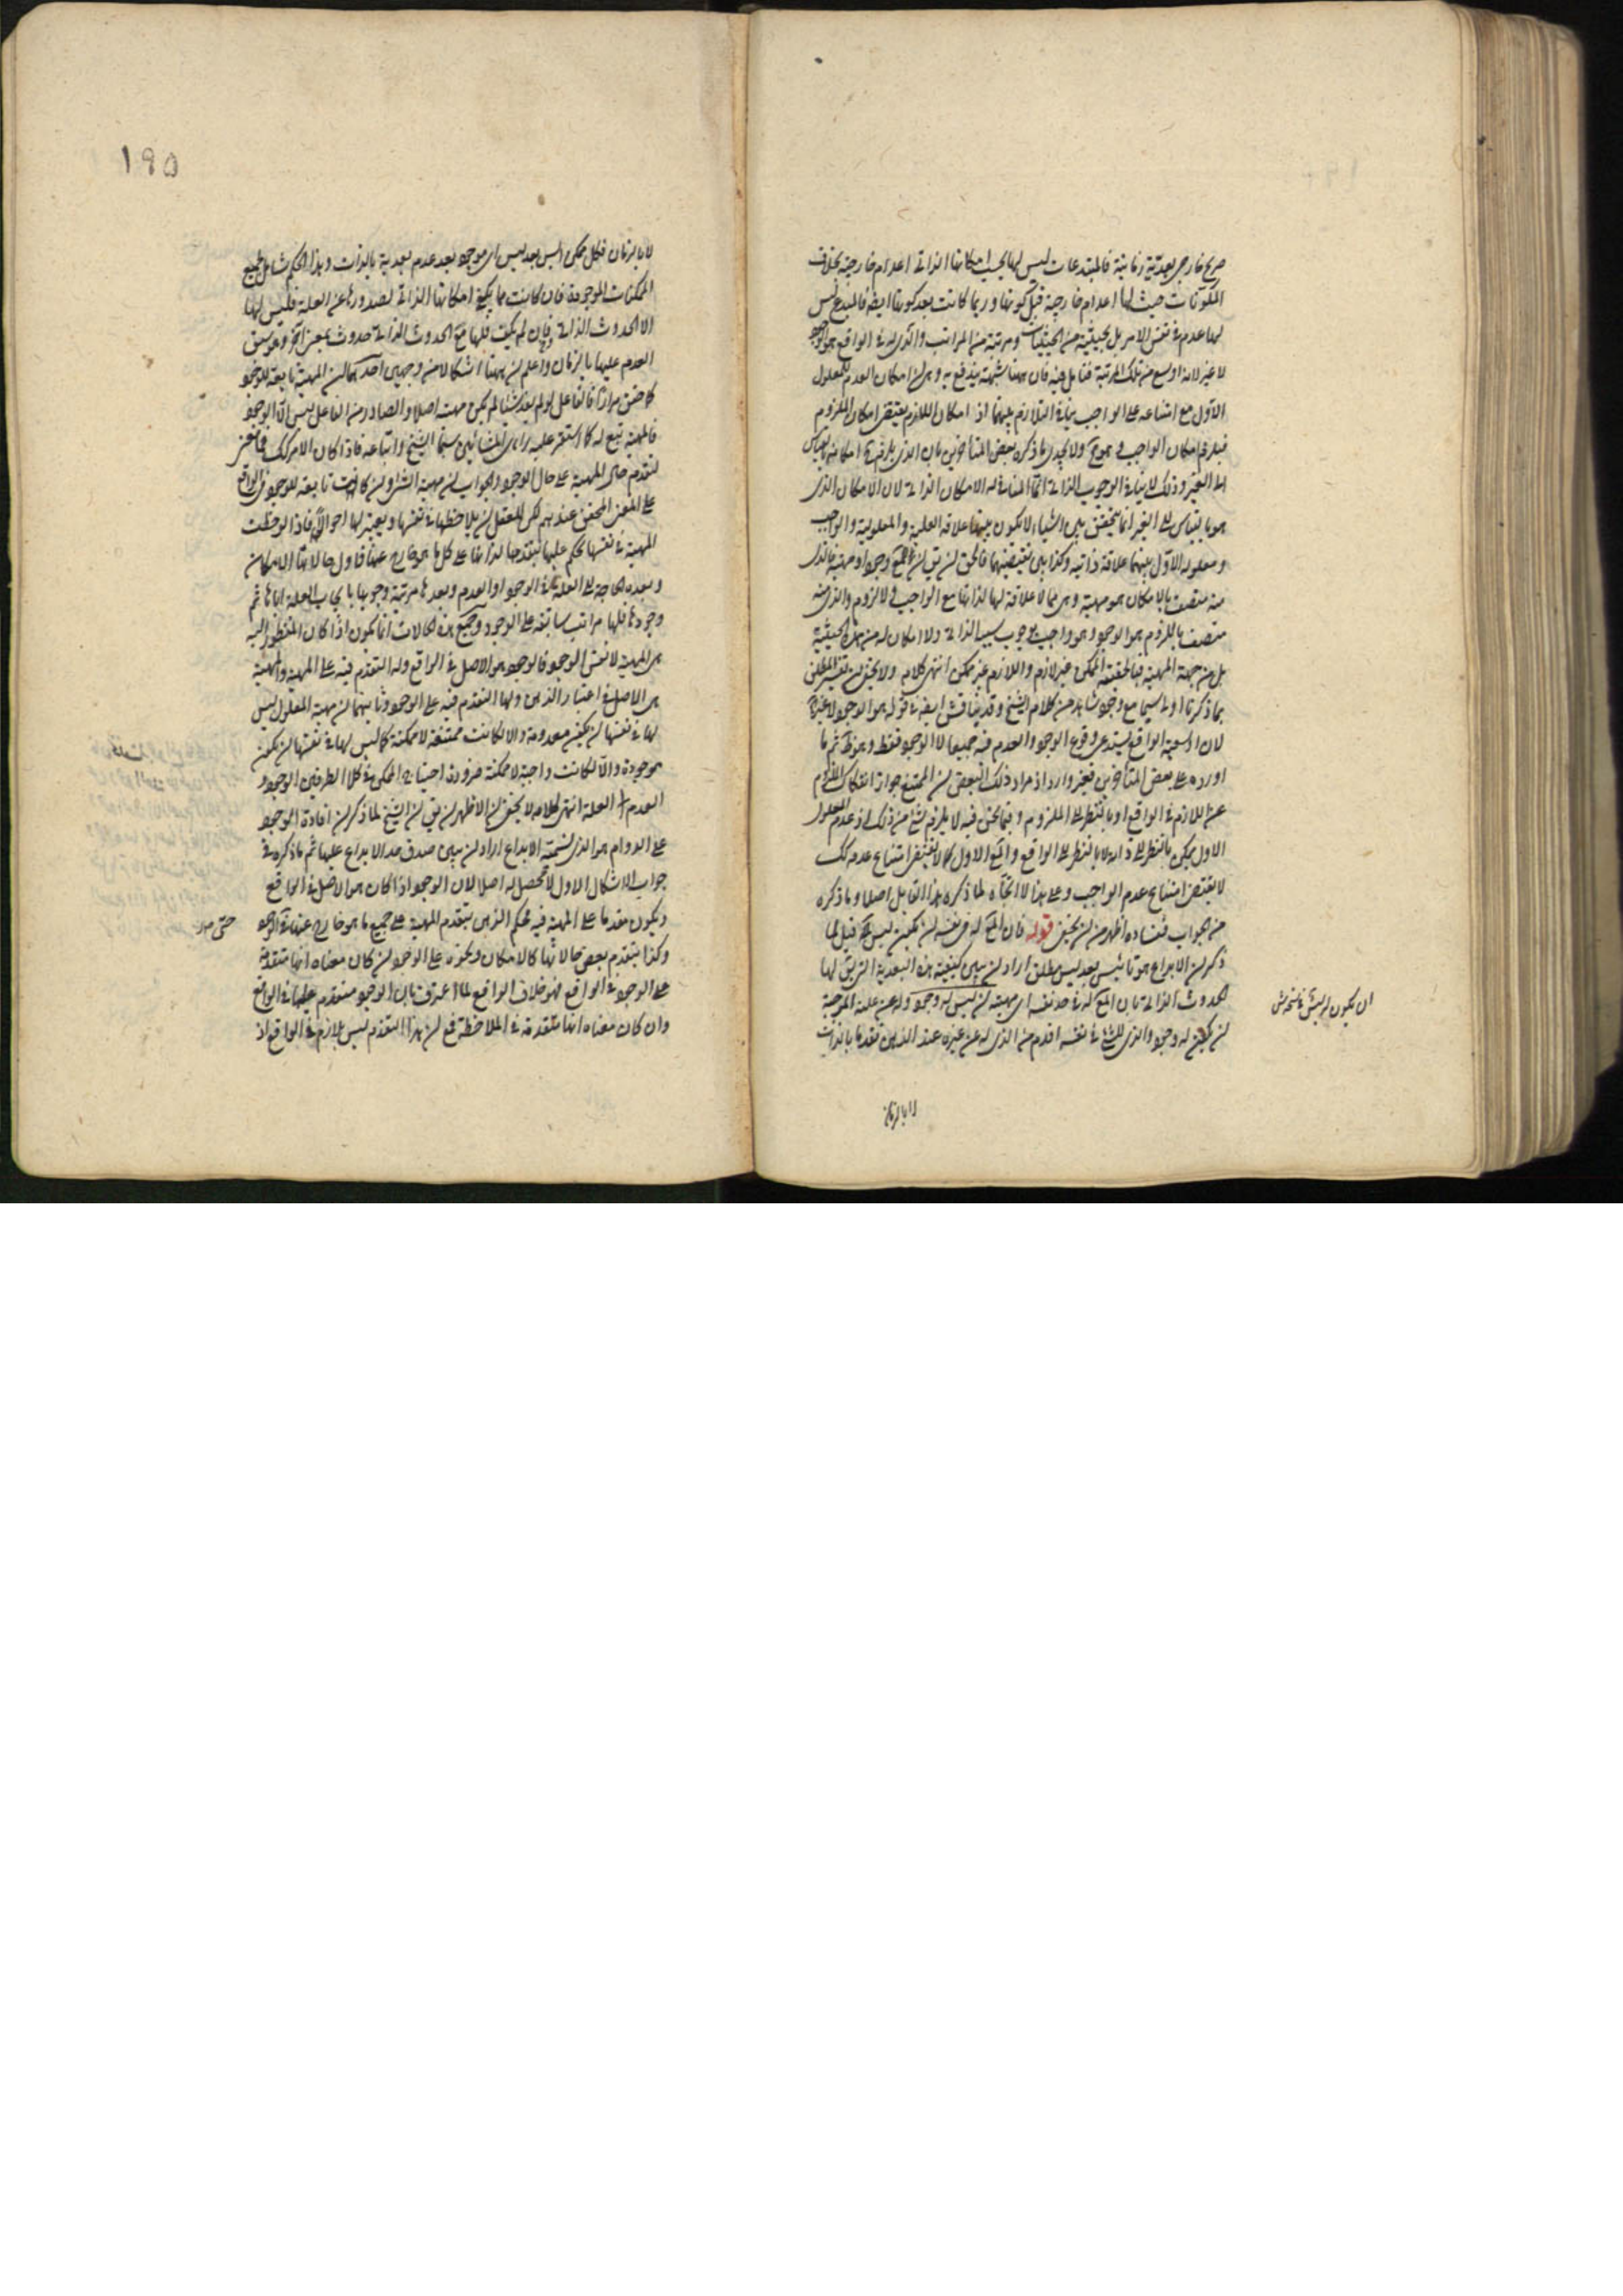 صريح خارجى بعدية زمانية فالمبتدعات ليس لها بحسب امكانها الذاتى اعدام خارجية بخلاف
المكونات حيث لها اعدام خارجية قبل كونها وربما كانت بعد كونها ايضا فالمبدع ليس
لها عدم فى نفس الامر بل بحيثية من الحيثيات ومرتبة من المراتب والذى له فى الواقع هو الوجود
لا غير لانه اوسع من تلك المرتبة فتامل فيه فان ههنا شبهة يندفع به وهى ان امكان العدم للمعلول
الاول مع امتناعه على الواجب ينافى التلازم بينهما اذ امكان اللازم يقتضى امكان الملزوم
فيلزم امكان الواجب وهو مح ولا يجدى ما ذكره بعض المتأخرين بان الذى يلزم ح امكانه بالقياس
الى الغير وذلك لا ينافى الوجوب الذاتى انما المنافى له الامكان الذاتى لان الامكان الذى
هو بالقياس الى الغير انما يتحقق بين اشياء لا يكون بينها علاقة العلية والمعلولية والواجب
ومعلوله الاول بينهما علاقة ذاتية وكذا بين نقيضيهما فالحق ان يق ان للمع وجودا ومهية فالذى
منه متصف بالامكان هو مهية وهى مما لا علاقة لها لذاتها مع الواجب ولا لزوم والذى منه
متصف باللزوم هو الوجود وهو واجب بوجوب سببه الذاتى ولا امكان له من هذه الحيثية
بل من جهة المهية فبالحقيقة الممكن غير لازم واللازم غير ممكن انتهى كلامه ولا يخفى ان تفسير المطلق
بما ذكرنا اولى سيما مع وجود شاهد من كلام الشيخ وقد يناقش ايضا فى قوله هو الوجود لا غير
لان اوسعية الواقع يستدعى وقوع الوجود والعدم فيه جميعا لا الوجود فقط وهو ظ ثم ما
اورده على بعض المتأخرين فغير وارد اذ مراد ذلك البعض ان الممتنع جواز انفكاك الملزوم
عن اللازم فى الواقع او بالنظر الى الملزوم وفيما نحن فيه لا يلزم شئ من ذلك اذ عدم المعلول
الاول ممكن بالنظر الى ذاته لا بالنظر الى الواقع والمع الاول كما لا يقتضى امتناع عدمه كك
لا يقتضى امتناع عدم الواجب وعلى هذا لا اتجاه لما ذكره هذا القايل اصلا وما ذكره
من الجواب ففساده اظهر من ان يخفى قوله فان للمع له فى نفسه ان يكون ليس آه قيل لما
ذكر ان الابداع هو تأييس بعد ليس مطلق اراد ان يبين كيفية هذه البعدية التى يق لها
الحدوث الذاتى بان المع له فى حد نفسه اى مهيته ان ليس له وجود وله عن علته المرجحة
ان يكون له وجود والذى للشئ فى نفسه اقدم من الذى له عن غيره عند الذهن تقدما بالذات
ان يكون له ليس فى نسخة ش
لا بالزمان
١٩٥
لا بالزمان فكل ممكن ايس بعد ليس اى موجود بعد عدم بعدية بالذات وهذا الحكم شامل لجميع
الممكنات الموجودة فان كانت مما يكفى امكانها الذاتى لصدورها عن العلة فليس لها
الا الحدوث الذاتى وان لم يكف فلها مع الحدوث الذاتى حدوث بمعنى آخر وهو سبق
العدم عليها بالزمان واعلم ان ههنا اشكالا من وجهين احدهما ان المهية تابعة للوجود
كما حقق مرارا فالفاعل لو لم يفد شيئا لم يكن مهية اصلا والصادر من الفاعل ليس الا الوجود
فالمهية تبع له كما استقر عليه راى المشائين سيما الشيخ واتباعه فاذا كان الامر كك فما معنى
لتقدم حال المهية على حال الوجود والجواب ان مهية الشئ وان كانت تابعة للوجود فى الواقع
على المعنى المحقق عندهم لكن للعقل ان يلاحظها فى نفسها ويعتبر لها احوالا فاذا لوحظت
المهية فى نفسها يحكم عليها بتقدمها لذاتها على كل ما هو خارج عنها فاول حالاتها الامكان
وبعده الحاجة الى العلة فى الوجود او العدم وبعدها مرتبة وجوبها بايجاب العلة اياها ثم
وجودها فلها مراتب سابقة على الوجود وجميع هذه الحالات انما يكون اذا كان المنظور اليه
هى المهية لا نفس الوجود فالوجود هو الاصل فى الواقع وله التقدم فيه على المهية والمهية
هى الاصل فى اعتبار الذهن ولها التقدم فيه على الوجود وثانيهما ان مهية المعلول ليس
لها فى نفسها ان يكون معدومة والا لكانت ممتنعة لا ممكنة كما ليس لها فى نفسها ان يكون
موجودة والا لكانت واجبة لا ممكنة ضرورة احتياج الممكن فى كلا الطرفين الوجود و
العدم الى العلة انتهى كلامه لا يخفى ان الاظهر ان يق ان الشيخ لما ذكر ان افادة الوجود
على الدوام هو الذى نسميه الابداع اراد ان يبين صدق حد الابداع عليها ثم ما ذكره فى
جواب الاشكال الاول لا محصل له اصلا لان الوجود اذا كان هو الاصل فى الواقع
ويكون مقدما على المهية فيه فحكم الذهن بتقدم المهية على جميع ما هو خارج عنها حتى الوجود
وكذا بتقدم بعض حالاتها كالامكان ونحوه على الوجود ان كان معناه انها متقدمة
على الوجود فى الواقع فهو خلاف الواقع لما اعترف بان الوجود متقدم عليها فى الواقع
وان كان معناه انها متقدمة فى الملاحظة فمع ان هذا التقدم ليس بلازم فى الواقع اذ